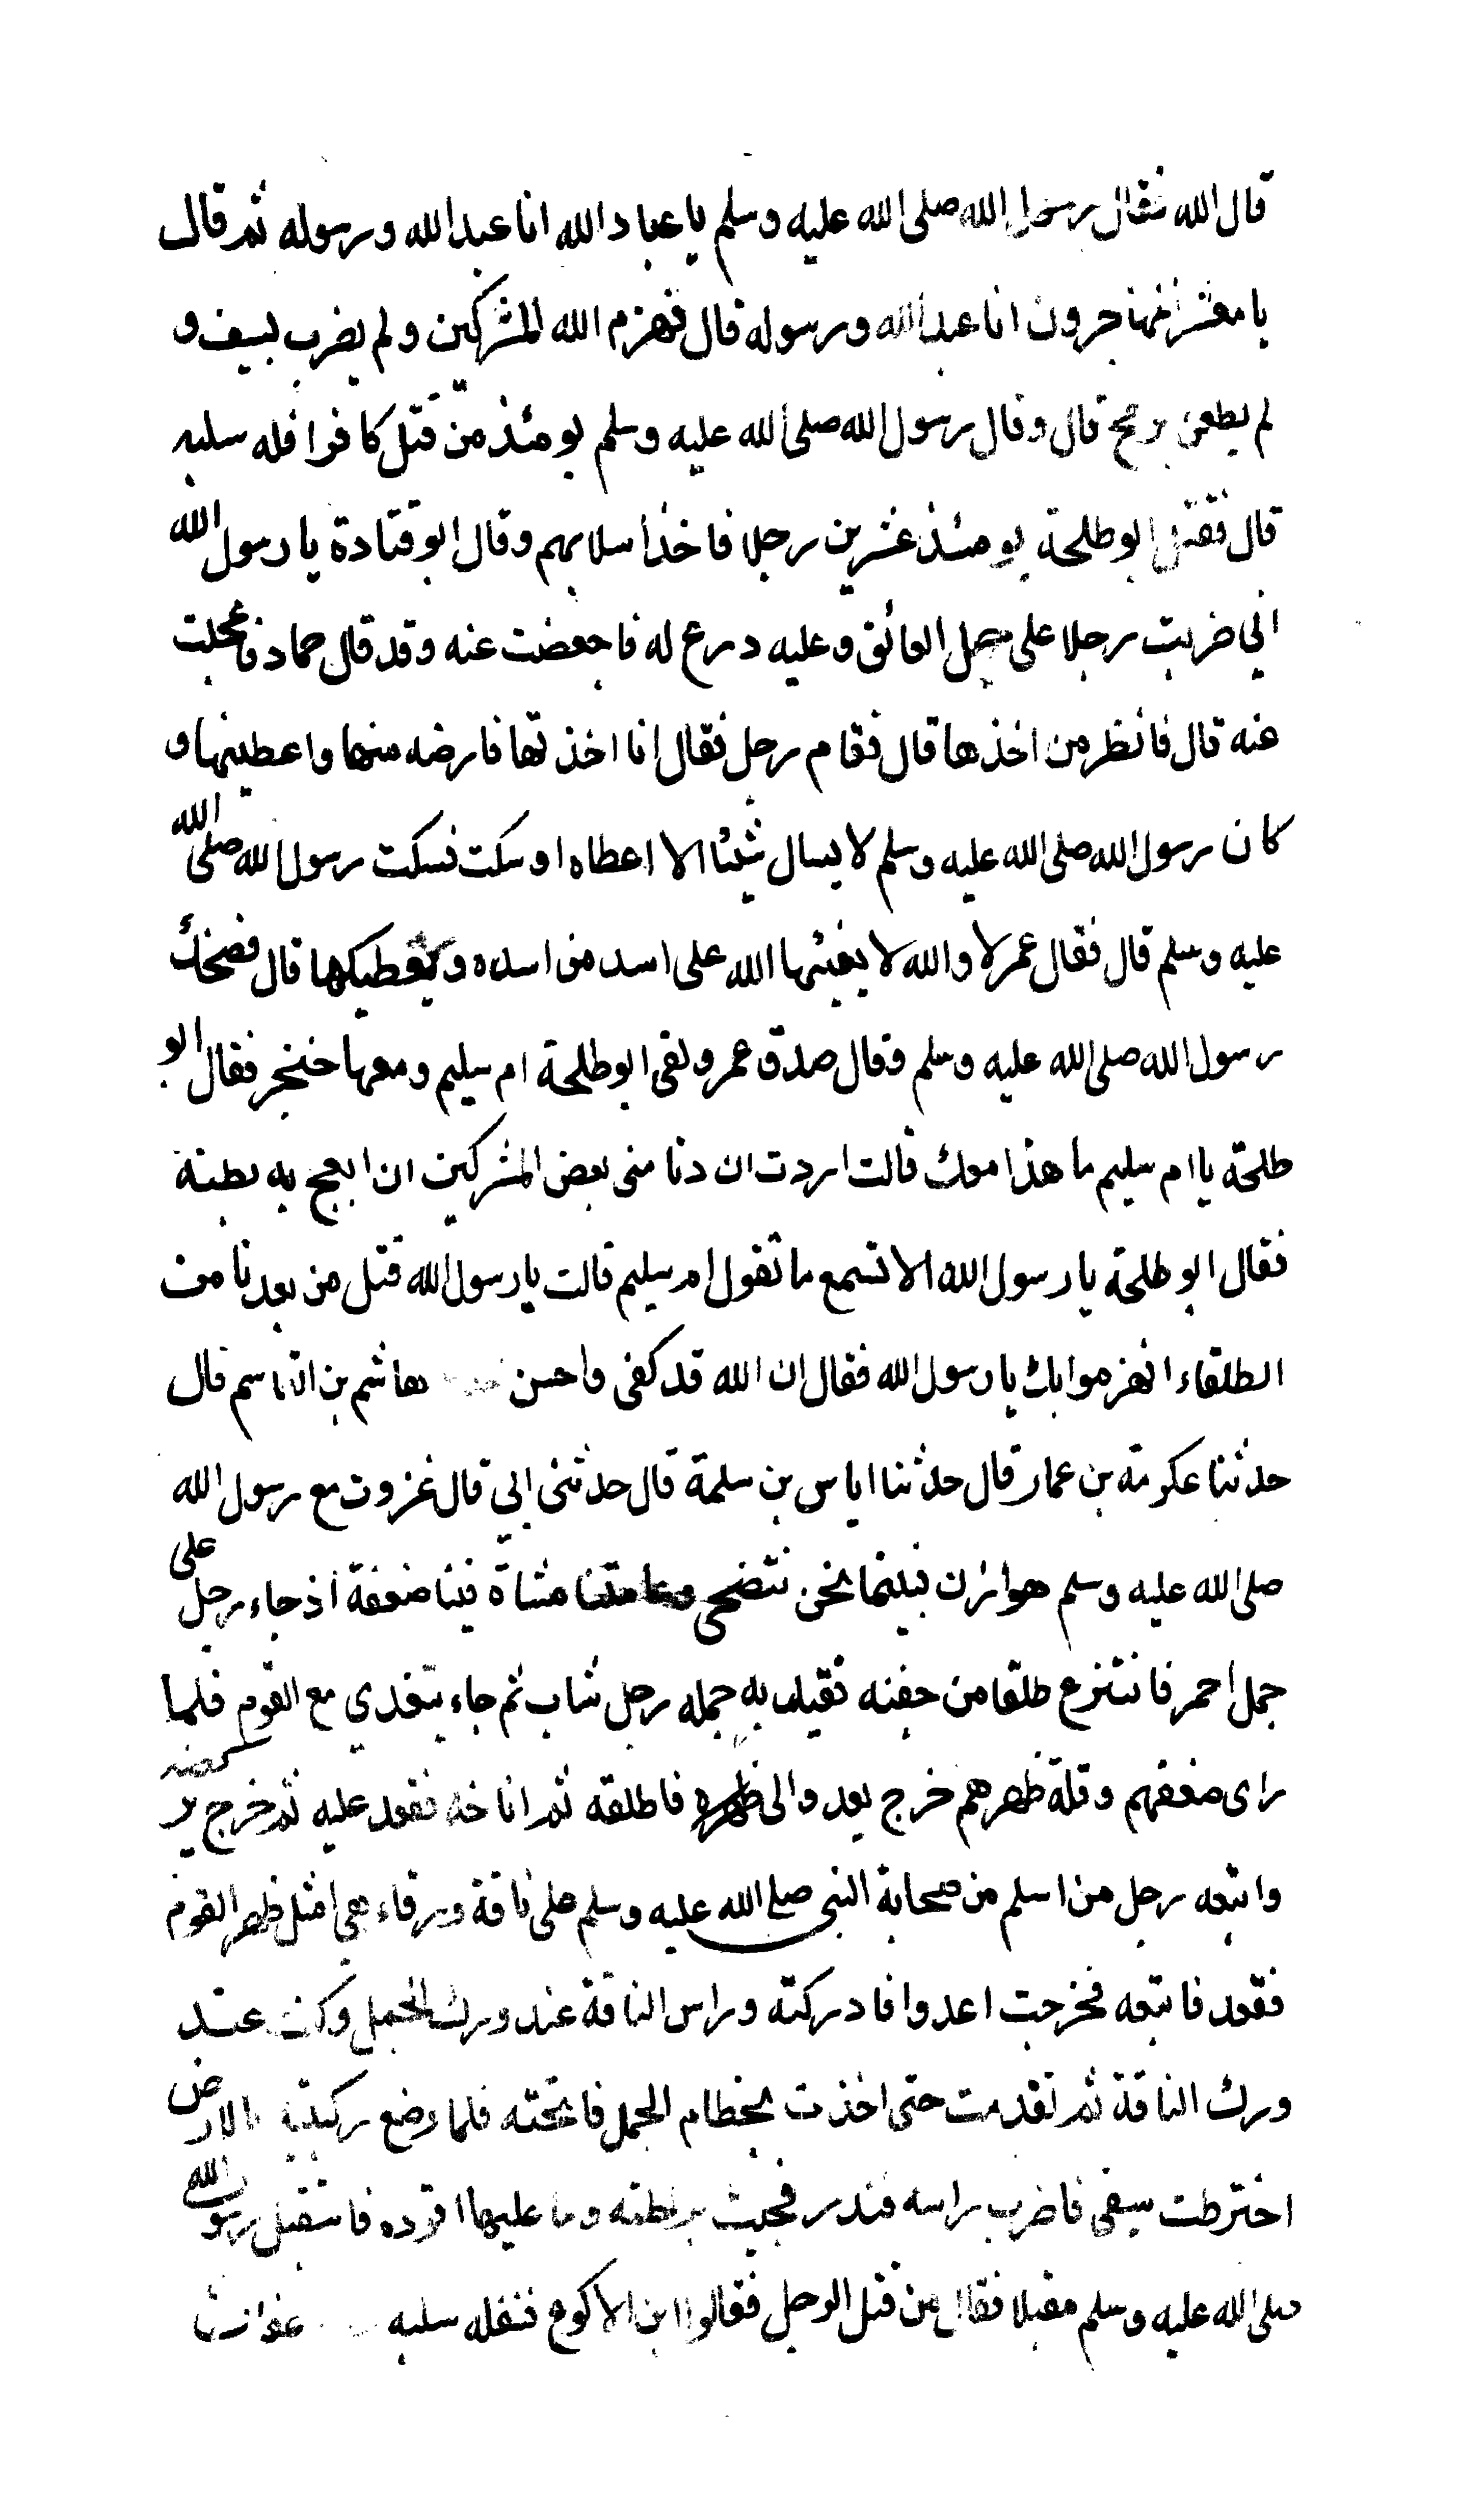 قال الله فقال رسول الله صلى الله عليه وسلم يا عباد الله انا عبد الله ورسوله ثم قال
يا معشر المهاجرون انا عبد الله ورسوله قال فهزم الله المشركين ولم يضرب بسيف و
لم يطعن برمح قال وقال رسول الله صلى الله عليه وسلم يومئذ من قتل كافرا فله سلبه
قال فقتل ابو طلحة يومئذ عشرين رجلا فاخذ اسلابهم وقال ابو قتادة يا رسول الله
اني ضربت رجلا على حبل العاتق وعليه درع له فاجهضت عنه وقد قال حماد فاعجلت
عنه قال فانظر من اخذها قال فقام رجل فقال انا اخذتها فارضه منها واعطينها و
كان رسول الله صلى الله عليه وسلم لا يسال شيئا الا اعطاه او سكت فسكت رسول الله صلى الله
عليه وسلم قال فقال عمر لا والله لا يفيئها الله على اسد من اسده ويعطيكها قال فضحك
رسول الله صلى الله عليه وسلم وقال صدق عمر ولقى ابو طلحة ام سليم ومعها خنجر فقال ابو
طلحة يا ام سليم ما هذا معك قالت اردت ان دنا منى بعض المشركين ان ابعج به بطنه
فقال ابو طلحة يا رسول الله الا تسمع ما تقول ام سليم قالت يا رسول الله قتل من بعدنا من
الطلقاء انهزموا بك يا رسول الله فقال ان الله قد كفى واحسن هاشم بن القاسم قال
حدثنا عكرمة بن عمار قال حدثنا اياس بن سلمة قال حدثنى ابي قال غزوت مع رسول الله
صلى الله عليه وسلم هوازن فبينما نحن نتضحى وعامتنا مشاة فينا ضعفة اذ جاء رجل على
جمل احمر فانتزع طلقا من حقبه فقيد به جمله رجل شاب ثم جاء يتغدي مع القوم فلما
راى ضعفهم وقلة ظهرهم خرج يعدو الى ظهره فاطلقه ثم اناخه فقعد عليه ثم خرج يركضه
واتبعه رجل من اسلم من صحابة النبي صلى الله عليه وسلم على ناقة ورقاء هي امثل ظهر القوم
فقعد فاتبعه فخرجت اعدوا فادركته وراس الناقة عند ورك الجمل وكنت عند
ورك الناقة ثم تقدمت حتى اخذت بخطام الجمل فانختة فلما وضع ركبته بالارض
اخترطت سيفى فاضرب راسه فندر فجيت براحلته وما عليها اقوده فاستقبل رسول الله
صلى الله عليه وسلم مقبلا فقال من قتل الرجل فقالوا ابن الاكوع فنفله سلبه